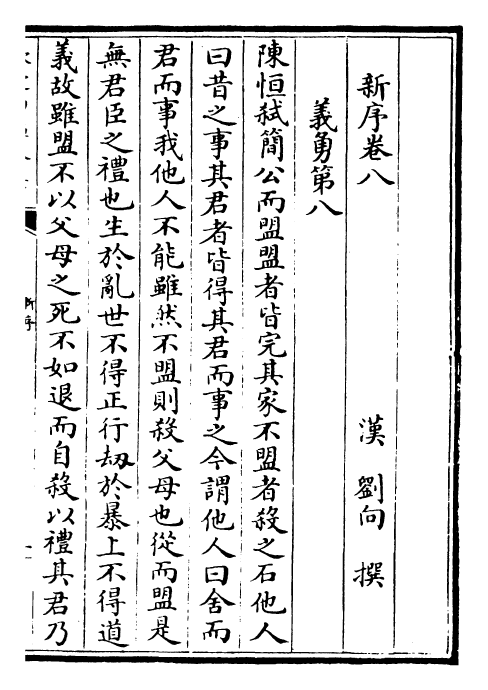 新序卷八
漢 劉向 撰
義勇第八
陳恒弑簡公而盟盟者皆完其家不盟者殺之石他人
曰昔之事其君者皆得其君而事之今謂他人曰舍而
君而事我他人不能雖然不盟則殺父母也從而盟是
無君臣之禮也生於亂世不得正行劫於暴上不得道
義故雖盟不以父母之死不如退而自殺以禮其君乃
新序